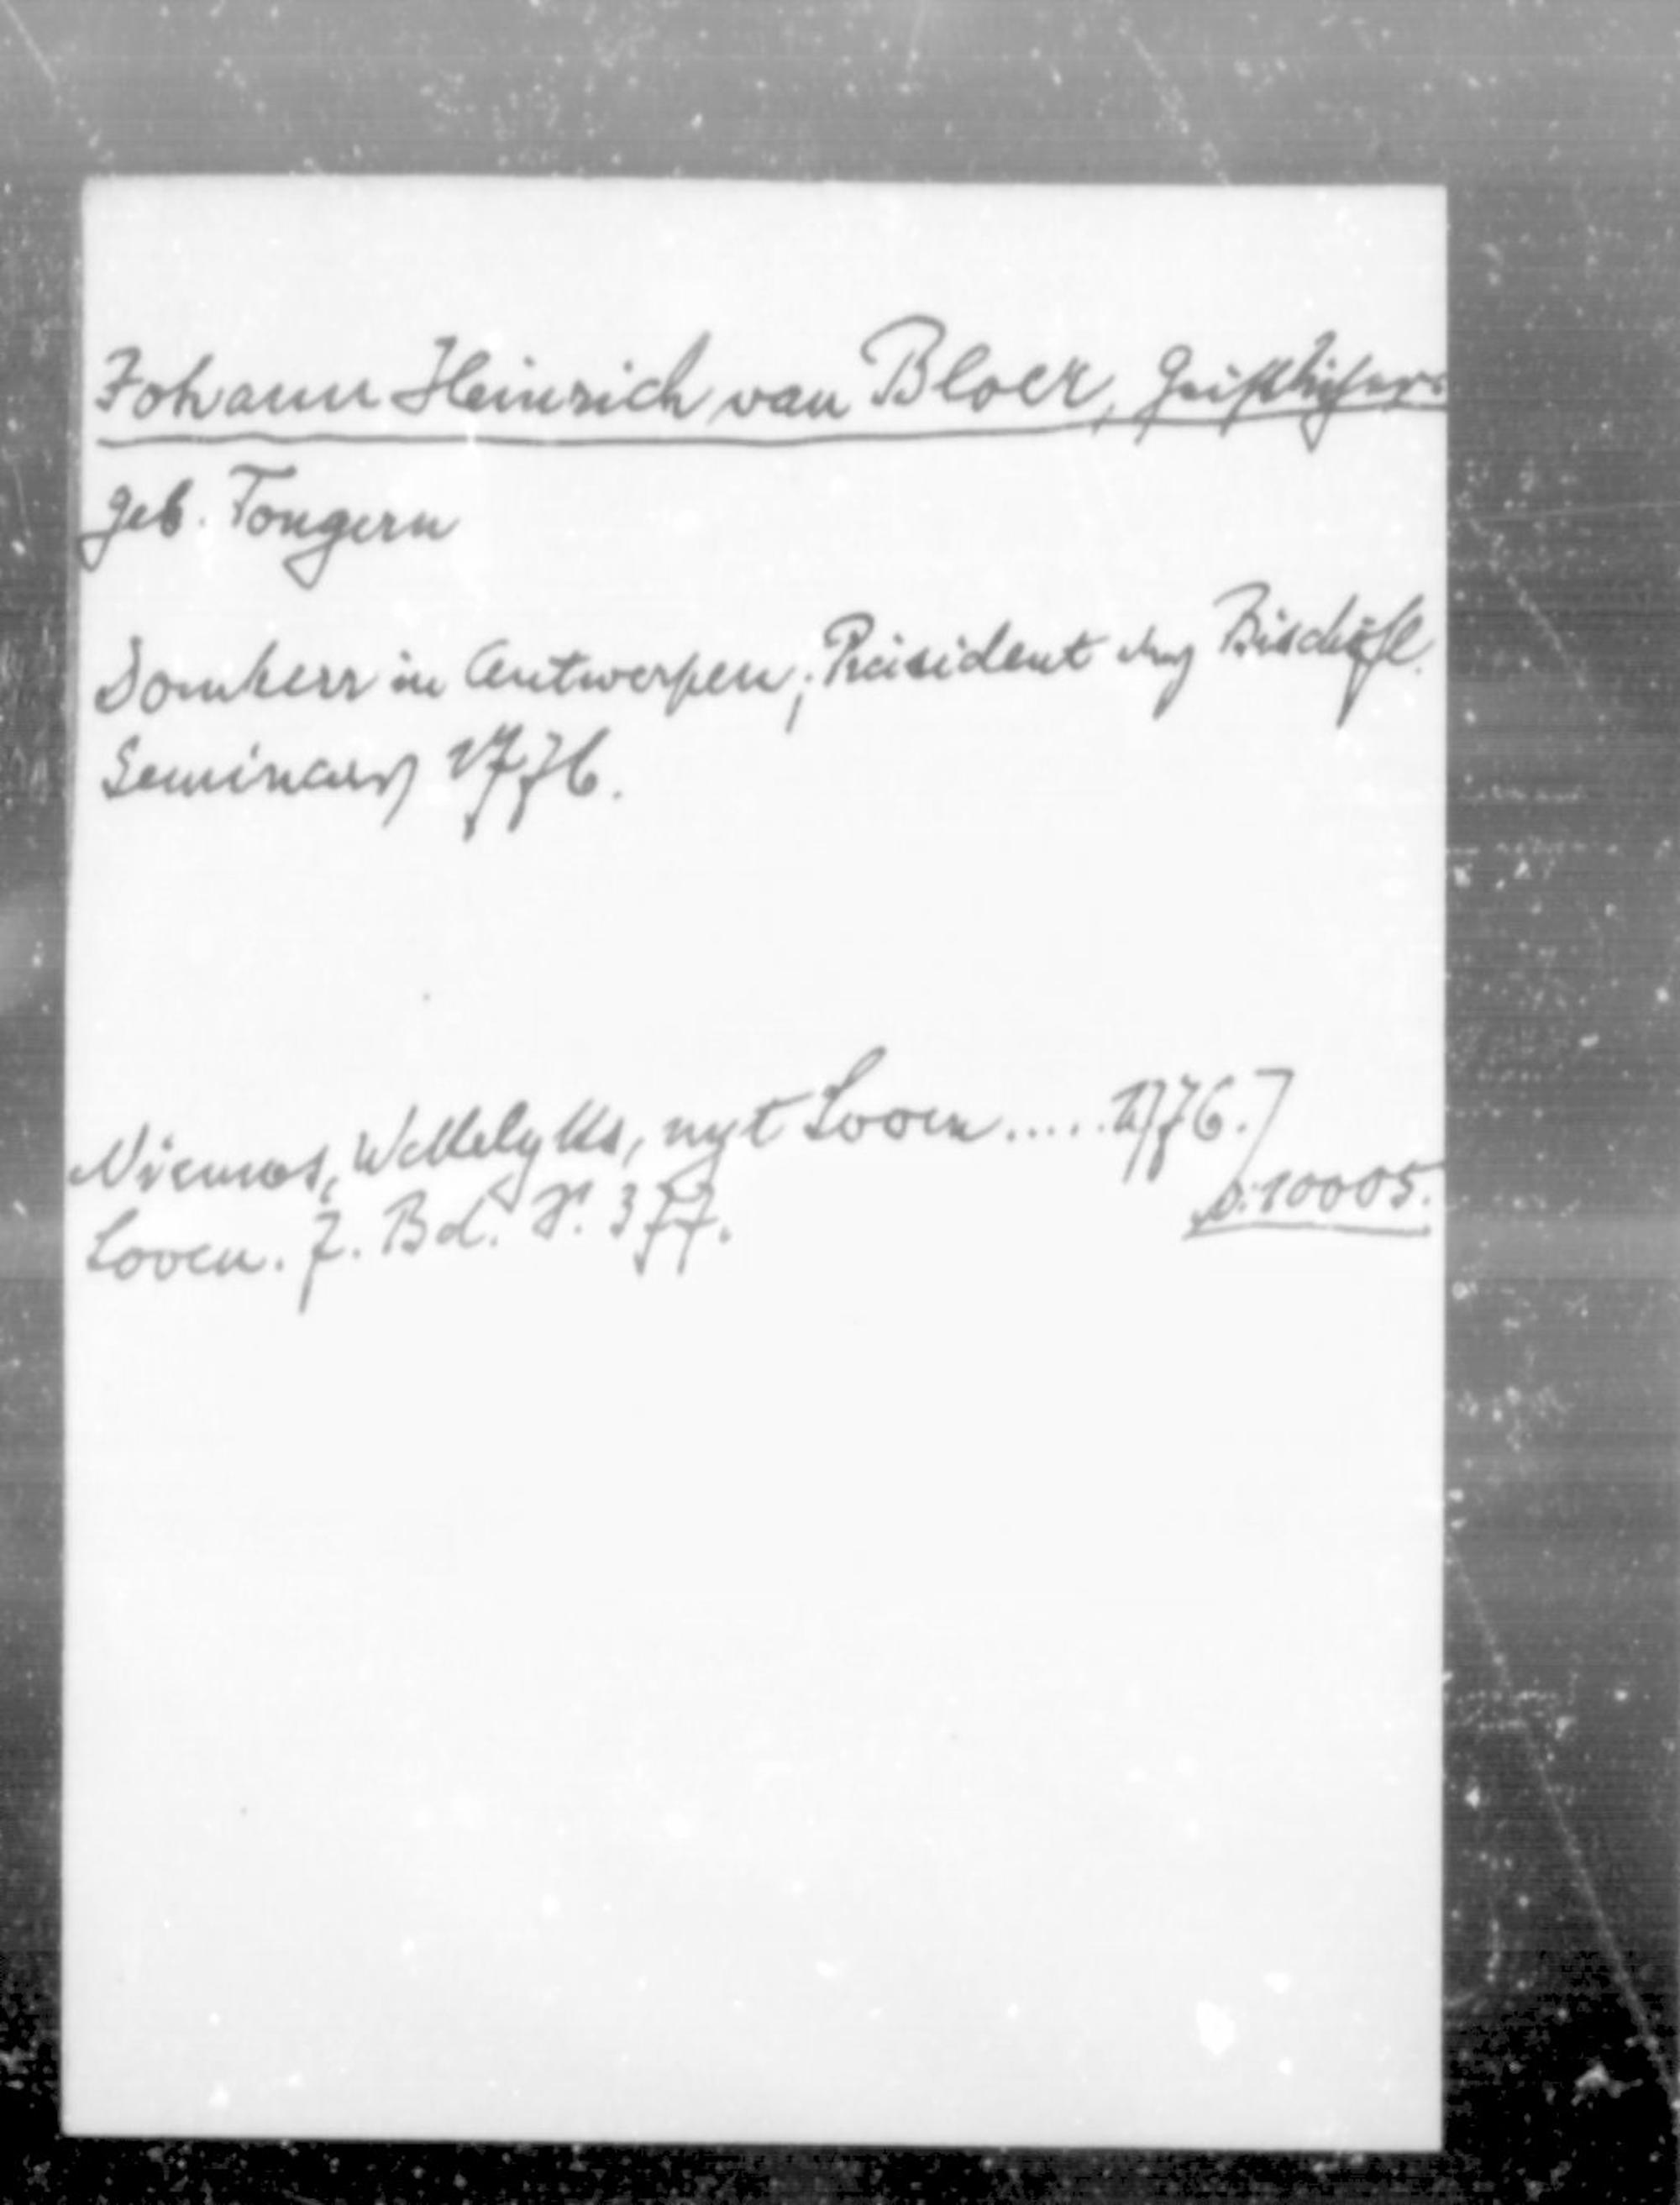 Johann Heinrich van Bloer, Geistlicher.
geb. Tongern
Domherr in Antwerpen; Präsident des Bischöfl.
Seminars 1776.
Nieuws, Wekelyks, uyt Loven ..... 1776.
D: 10005.
Loven. 7. Bd. S. 377.